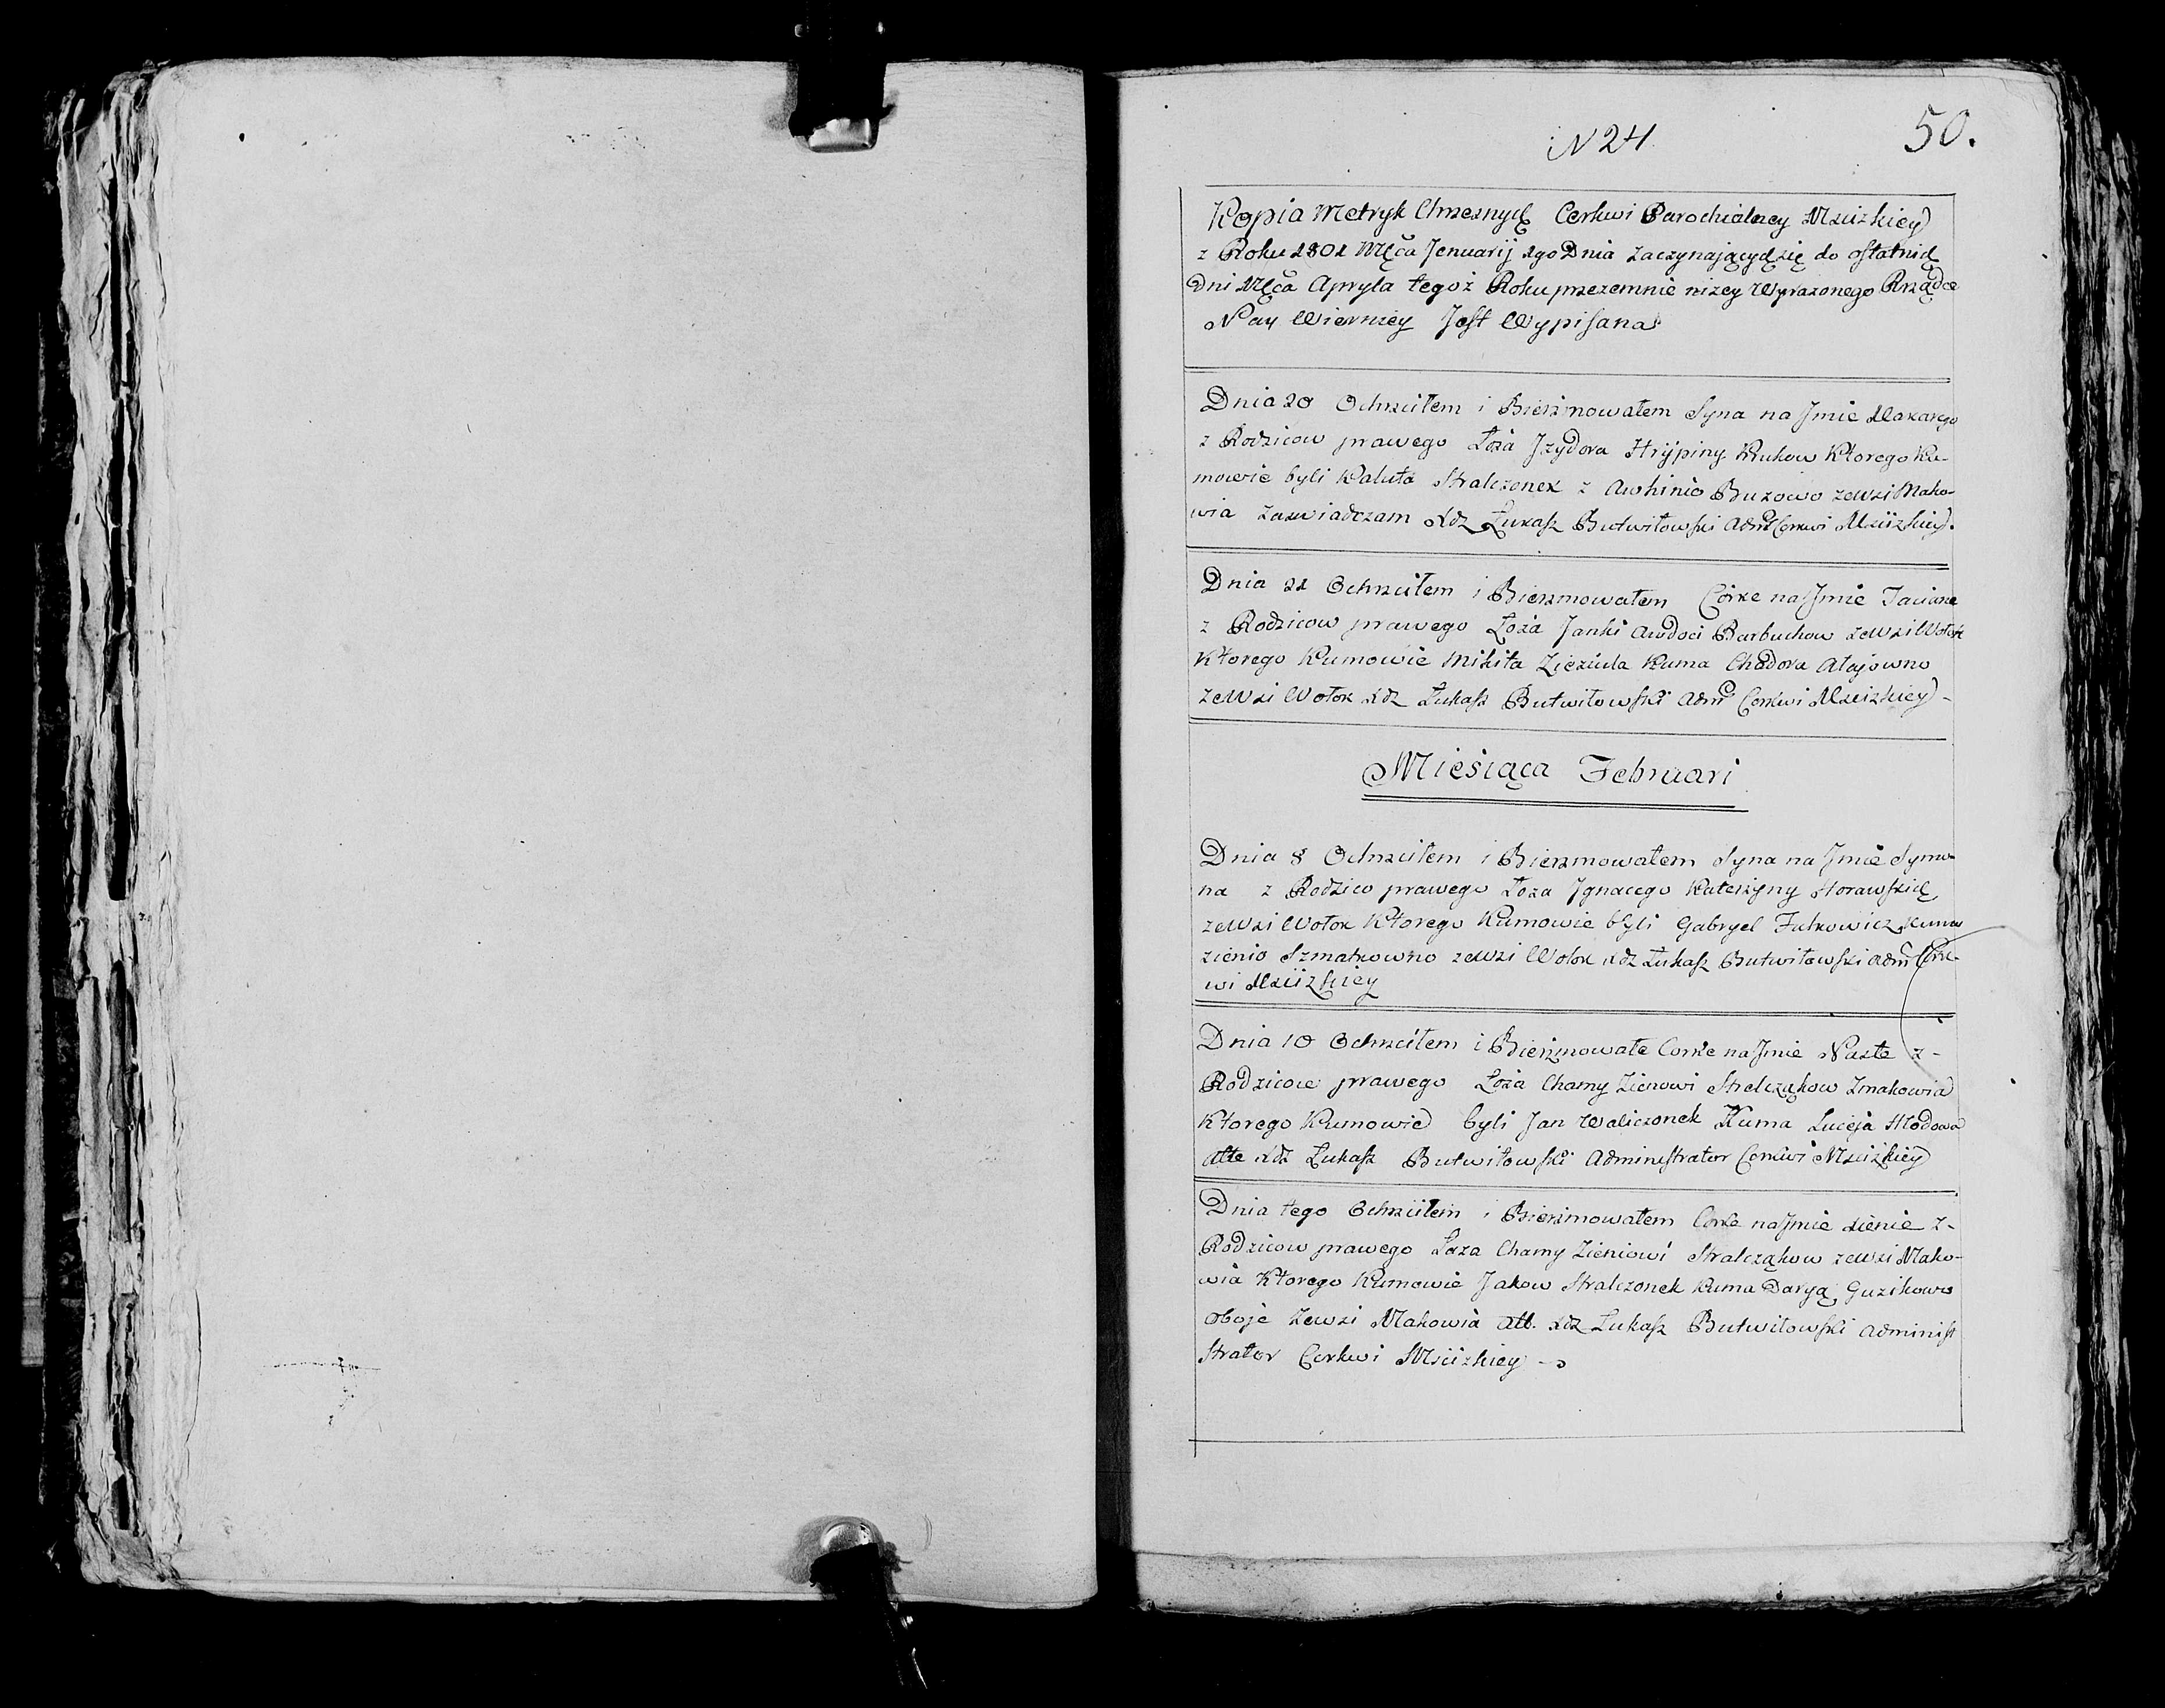 N 24
50.
Kopia Metryk Chrzesnych Cerkwi Parochialney Mscizkiey
z Roku 1801 Mca Jenuarij 1go Dnia zaczynających się do ostatnich
Dni Mca Apryla tegoż Roku przezemnie niżey Wyrażonego Rządce
Nay Wierniey Jest Wypisana
Dnia 20 Ochrzciłem i Bierzmowałem Syna na Jmie Makarego
z Rodzicow prawego Łoża Jzydora Hrypiny Krukow Ktorego Ku-
mowie byli Kaluta Stralczonek z Awhinio Buzowo zewsi Mako-
wia zaswiadczam Xdz Łukasz Butwiłowski Adm Cerkwi Mscizkiey.
Dnia 21 Ochrzciłem i Bierzmowałem Córke na Jmie Taciane
z Rodzicow prawego Łoża Janki Awdoci Barbuchow zewsi Wołok
Ktorego Kumowie Mikita Zieziula Kuma Chodora Ałajowno
zewsi Wołok Xdz Łukasz Butwiłowski Adm Cerkwi Mscizkiey -
Miesiąca Februari
Dnia 8 Ochrzciłem i Bierzmowałem Syna na Jmie Symo-
na z Rodzico prawego Łoża Jgnacego Kateryny Horawskich
zewsi Wołok Ktorego Kumowie byli Gabryel Kuma
zienio Szmatkowno zewsi Wołok Xdz Łukasz Butwiłowski Adm Cerk-
wi Mscizkiey
Dnia 10 Ochrzciłem i Bierzmowałe Corke na Jmie Naste z -
Rodzicow prawego Łoża Chamy Zienowi Stralcząkow zmakowia
Ktorego Kumowie byli Jan Waliczonek Kuma Luceja Hłodowa
Atte Xdz Łukasz Butwiłowski Administrator Cerkwi Mscizkiey
Dnia tego Ochrzciłem i Bierzmowałem Corke na Jmie Xienie z -
Rodzicow prawego Łoza Chamy Zieniowi Stralcząkow zewsi Mako-
wia Ktorego Kumowie Jakow Stralczonek Kuma Daryą Guzikowo
oboje zewsi Makowia Att. Xdz Łukasz Butwiłowski Administ
Strator Cerkwi Mscizkiey -